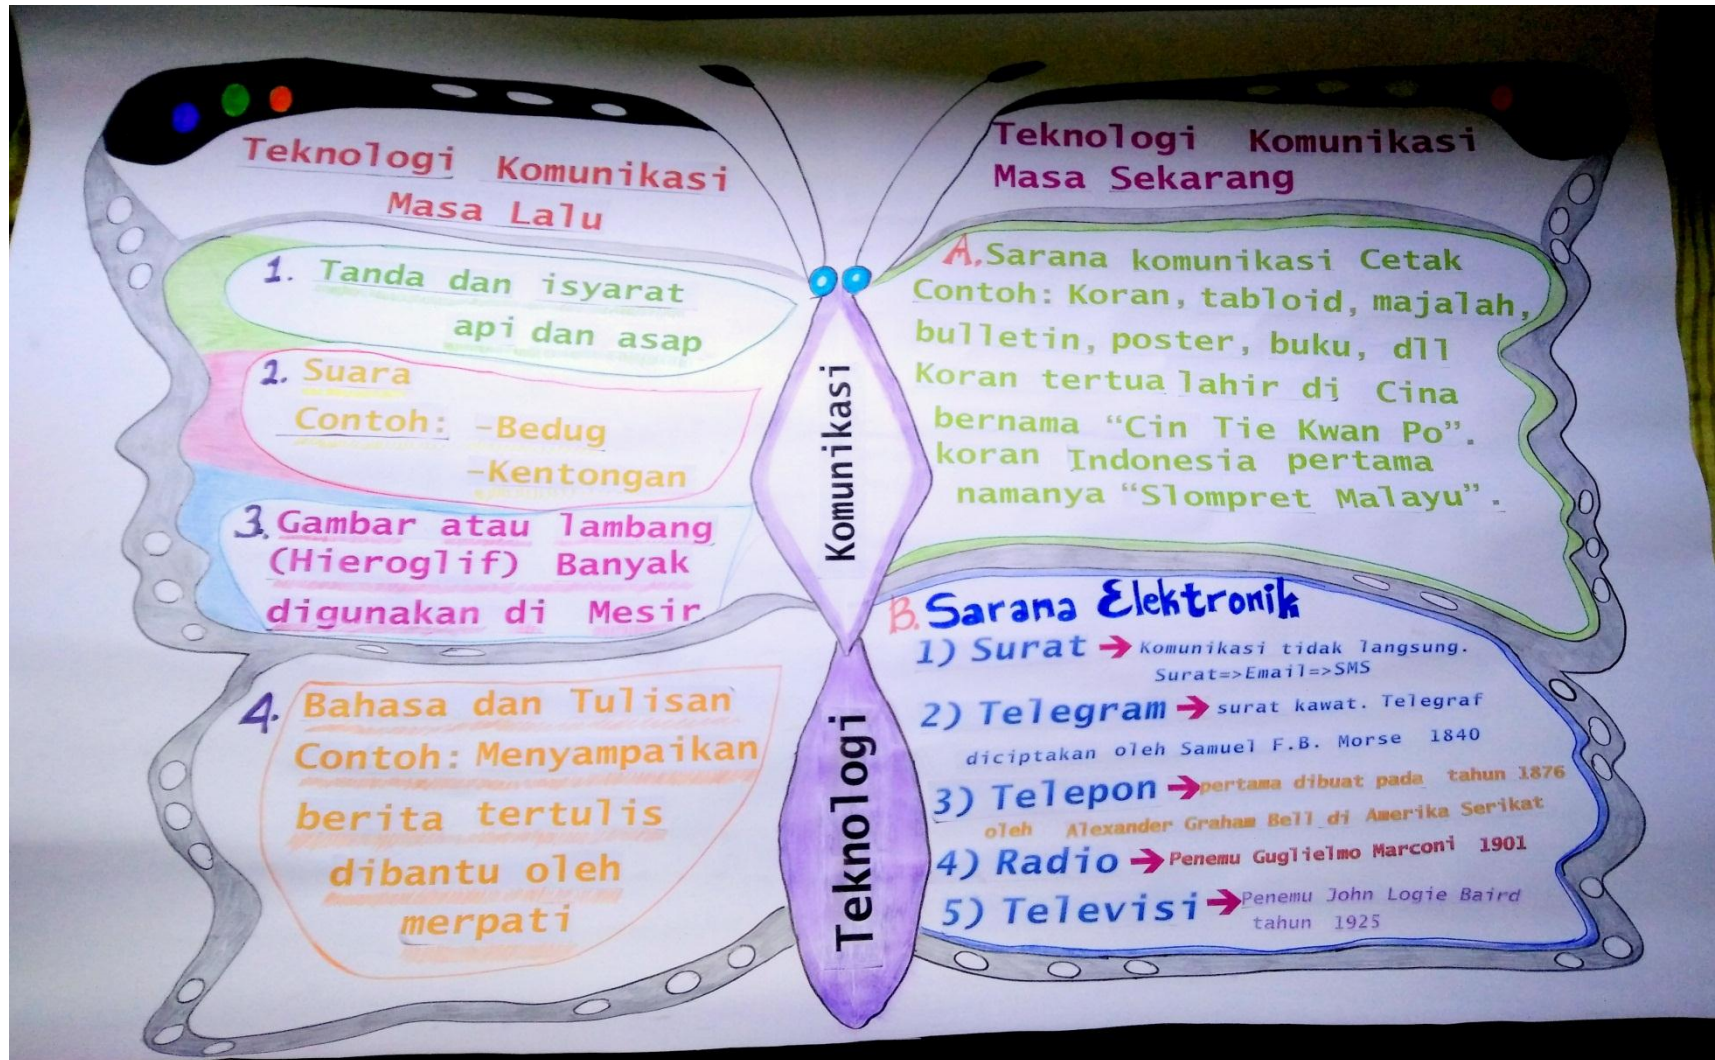 Teknologi Komunikasi
Masa Lalu
1. Tanda dan isyarat
api dan asap
2. Suara
Contoh: -Bedug
-Kentongan
3. Gambar atau lambang
(Hieroglif) Banyak
digunakan di Mesir
4. Bahasa dan Tulisan
Contoh: Menyampaikan
berita tertulis
dibantu oleh
merpati
Komunikasi
Teknologi
Teknologi Komunikasi
Masa Sekarang
A. Sarana komunikasi Cetak
Contoh: Koran, tabloid, majalah,
bulletin, poster, buku, dll
Koran tertua lahir di Cina
bernama “Cin Tie Kwan Po”.
koran Indonesia pertama
namanya “Slompret Malayu”.
B. Sarana Elektronik
1) Surat → Komunikasi tidak langsung.
Surat=>Email=>SMS
2) Telegram → surat kawat. Telegraf
diciptakan oleh Samuel F.B. Morse 1840
3) Telepon → pertama dibuat pada tahun 1876
oleh Alexander Graham Bell di Amerika Serikat
4) Radio → Penemu Guglielmo Marconi 1901
5) Televisi → Penemu John Logie Baird
tahun 1925